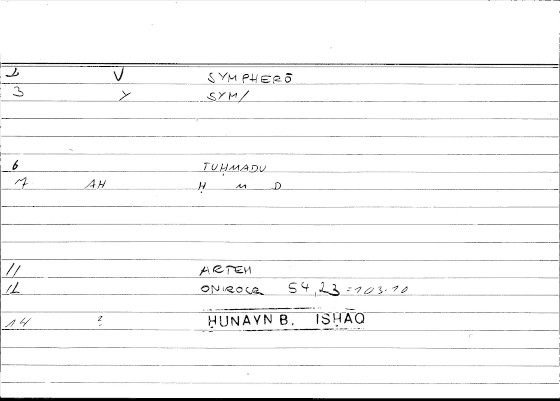 1 V SYMPHERŌ
3 Y SYM/
6 TUḤMADU
7 AH Ḥ M D
11 ARTEM
12 ONIROCR 54,23=103.10
14 ? ḤUNAYN B. ISḤĀQ